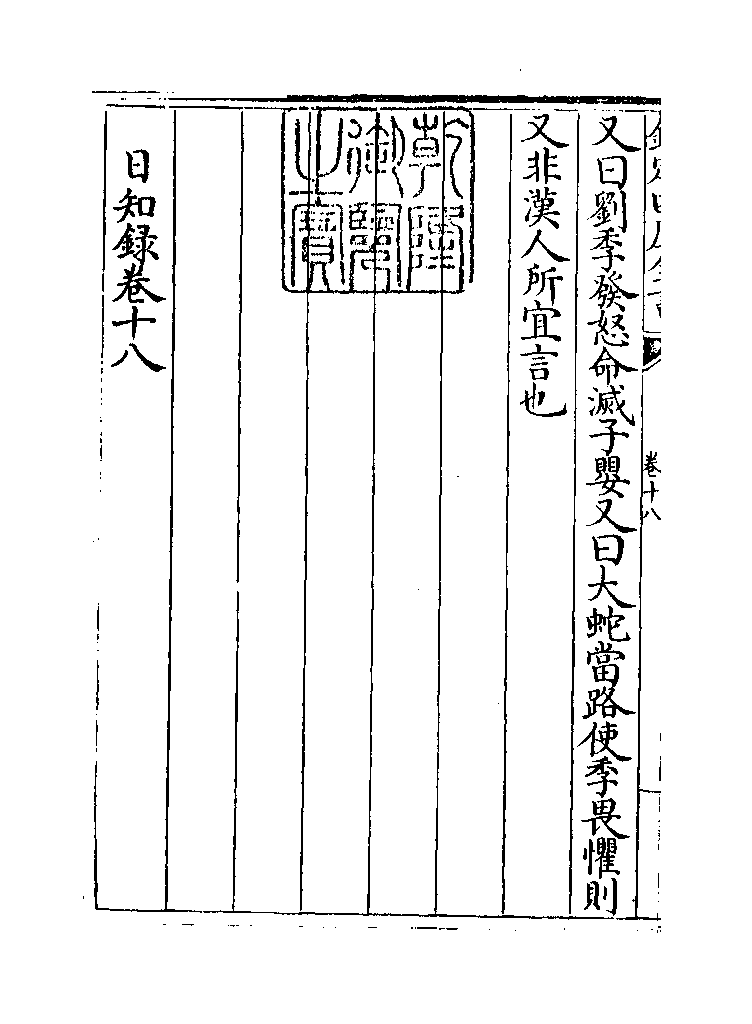 又曰劉季發怒命滅子嬰又曰大蛇當路使季畏懼則
又非漢人所宜言也
乾隆御覽之寶
日知録卷十八
卷十八